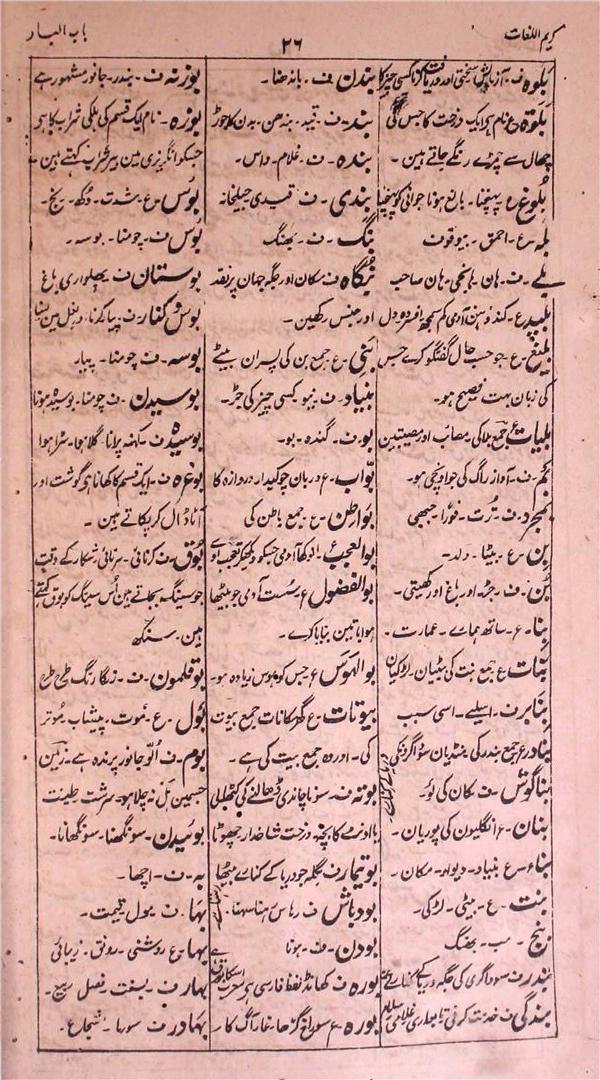 کریم اللغات
۲۶
باب البار
بلوہ ف۔ آزمایش سختی اور دریافت کرنا کسی چیز کا
بلوۃ ع نام ہی ایک درخت کا جس کی
چھال سے چمڑے رنگے جاتے ہین۔
بلوغ ع پہنچنا۔ بالغ ہونا جوانی کو پہنچنا
بلہ۔ ع۔ احمق۔ بیوقوف
بلے۔ ف۔ ہان۔ ہانجی۔ ہان صاحب
بلید ع۔ کند ذہن آدمی کم سمجھ افسردہ دل
بلیغ۔ ع۔ جو حسب حال گفتگو کرے جس
کی زبان بہت فصیح ہو۔
بلیات ع جمع بلا کی مصائب اور مصیبتین
بم۔ ف۔ آواز راگ کی جو اونچی ہو۔
بمجرد۔ ف۔ تُرت۔ فوراً جبھی
بن۔ ع۔ بیٹا۔ ولد۔
بُن۔ ف۔ جڑ۔ اور باغ اور کھیتی۔
بنا۔ ع۔ ساتھ ہمارے۔ عمارت۔
بنات ع جمع بنت کی بیٹیان۔ لڑکیان
بنابر ف۔ اسلیے۔ اسی سبب
بنادر ع جمع بندر کی منڈیان سوداگرونکی
بناگوش۔ ف۔ کان کی لَو۔
بنان۔ ع۔ انگلیون کی پوریان۔
بناء۔ ع۔ بنیاد۔ دیوار۔ مکان۔
بنت۔ ع۔ بیٹی۔ لڑکی۔
بنج۔ سب۔ بھنگ
بندر ف سوداگری کی جگہ دریا کے کنارے
بندگی ف خدمت کرنی تابعداری غلامی
بندن ف۔ باندھنا۔
بند۔ ف۔ قید۔ بندھن۔ بدن کا جوڑ
بندہ۔ ف۔ غلام۔ داس۔
بندی۔ ف۔ قیدی جیلخانہ
بنگ۔ ف۔ بھنگ
بنگاہ ف مکان اور جگہ جہان پر نقد
اور جنس رکھین۔
بنی۔ ع۔ جمع بن کی پسران بیٹے
بنیاد۔ ف۔ نیو کسی چیز کی جڑ۔
بو۔ ف۔ گندہ۔ بو۔
بوّاب۔ ع۔ دربان چوکیدار دروازہ کا
بواطن۔ ع۔ جمع باطن کی
بوالعجب ع۔ انوکھا آدمی جسکو دیکھکر تعجب آوے
بوالفضول ع۔ سُست آدمی جو بیٹھا
ہوا باتین بنایا کرے۔
بوالہوس ع جس کو ہوس زیادہ ہو۔
بیوتات۔ ع گھر مکانات جمع بیوت
کی۔ اور وہ جمع بیت کی ہے۔
بوتہ ف۔ سونا چاندی ڈھالنے کی کٹھالی
یا اونٹ کا بچہ درخت شاخدار چھوٹا
بوتیمار ف بگلہ جو دریا کے کنارے بیٹھا
بودباش ف رہا س رہنا سہنا۔
بودن۔ ف۔ ہونا
بورہ ف کھانڈ لفظ فارسی ہی معرب اسکا بورق ہے
بورہ۔ ع سوراخ گڑھا۔ غار آگ کا۔
بوزنہ ف۔ بندر۔ جانور مشہور ہے
بوزہ۔ ف۔ نام ایک قسم کی ہلکی شراب کا ہی
جسکو انگریزی مین بیر شراب کہتے ہین۔
بوس۔ ع۔ شدت۔ دُکھ۔ رنج۔
بوس ف۔ چومنا۔ بوسہ۔
بوستان ف۔ پھلواری باغ
بوس و کنار ف۔ پیار کرنا۔ و بغل مین لینا
بوسہ۔ ف۔ چومنا۔ پیار
بوسیدن۔ ف۔ چومنا۔ بوسیدہ ہونا
بوسیدہ ف۔ کہنہ پرانا۔ گلا ہوا۔ سڑا ہوا
بوغرہ ف۔ ایک قسم کا کھانا ہی گوشت اور
آٹا ڈال کر پکاتے ہین۔
بوق۔ ف۔ کرنائی۔ سرنائی۔ شکار کے وقت
جو سینگ بجاتے ہین اُس سینگ کو بوق کہتے
ہین۔ سنکھ
بوقلمون۔ ف۔ رنگا رنگ طرح طرح
بَول۔ ع۔ مُوت۔ پیشاب۔ مُوتر
بوم۔ ف۔ اُلّو جانور پرندہ ہے۔ زمین
جسمین ہل نہ چلا ہو۔ سرشت۔ طینت
بوئیدن۔ سونگھنا۔ سونگھانا۔
بہ۔ ف۔ اچھا۔
بہا۔ ف۔ مول۔ قیمت۔
بہا۔ ع۔ روشنی۔ رونق۔ زیبائی
بہار ف۔ بسنت۔ فصل ربیع۔
بہادر ف۔ سورما۔ شجاع۔